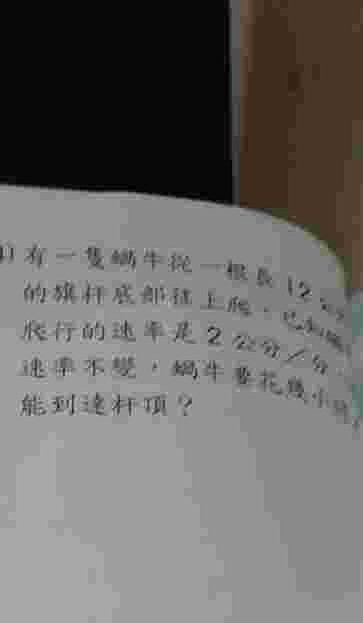 有一隻蝸牛從一根長12公
的旗杆底部往上爬，已知蝸
爬行的速率是2公分／分，
速率不變，蝸牛要花幾小時
能到達杆頂？